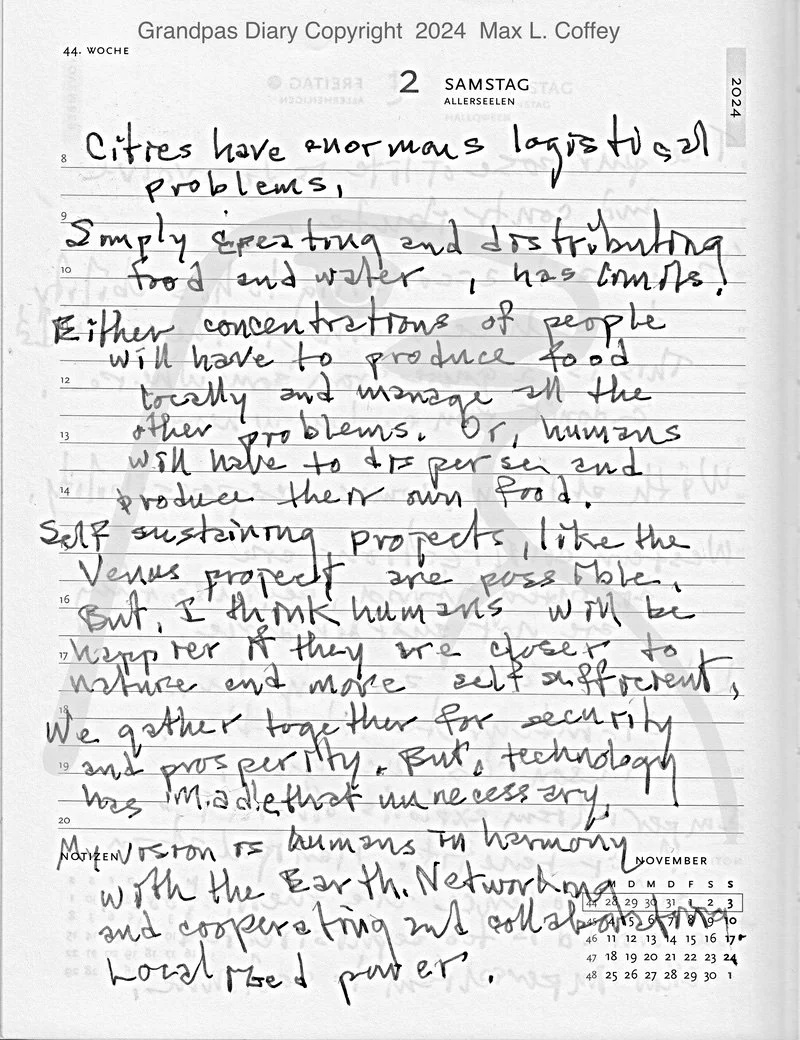 Grandpas Diary Copyright 2024 Max L. Coffey
44. WOCHE
2 SAMSTAG
ALLERSEELEN
2024
8 Cities have enormous logistical
problems,
9 Simply operating and distributing
10 food and water, has limits!
Either concentrations of people
will have to produce food
12 locally and manage all the
13 other problems. Or, humans
will have to disperse and
14 produce their own food.
Self sustaining projects, like the
Venus project are possible,
16 But, I think humans will be
17 happier if they are closer to
nature and more self sufficient,
18 We gather together for security
19 and prosperity. But, technology
has made that unnecessary,
20
My vision is humans in harmony
NOTIZEN
NOVEMBER
with the Earth. Networking
and cooperating and collaborating
Localized power.
M D M D F S S
44 28 29 30 31 1 2 3
45 4 5 6 7 8 9 10
46 11 12 13 14 15 16 17
47 18 19 20 21 22 23 24
48 25 26 27 28 29 30 1